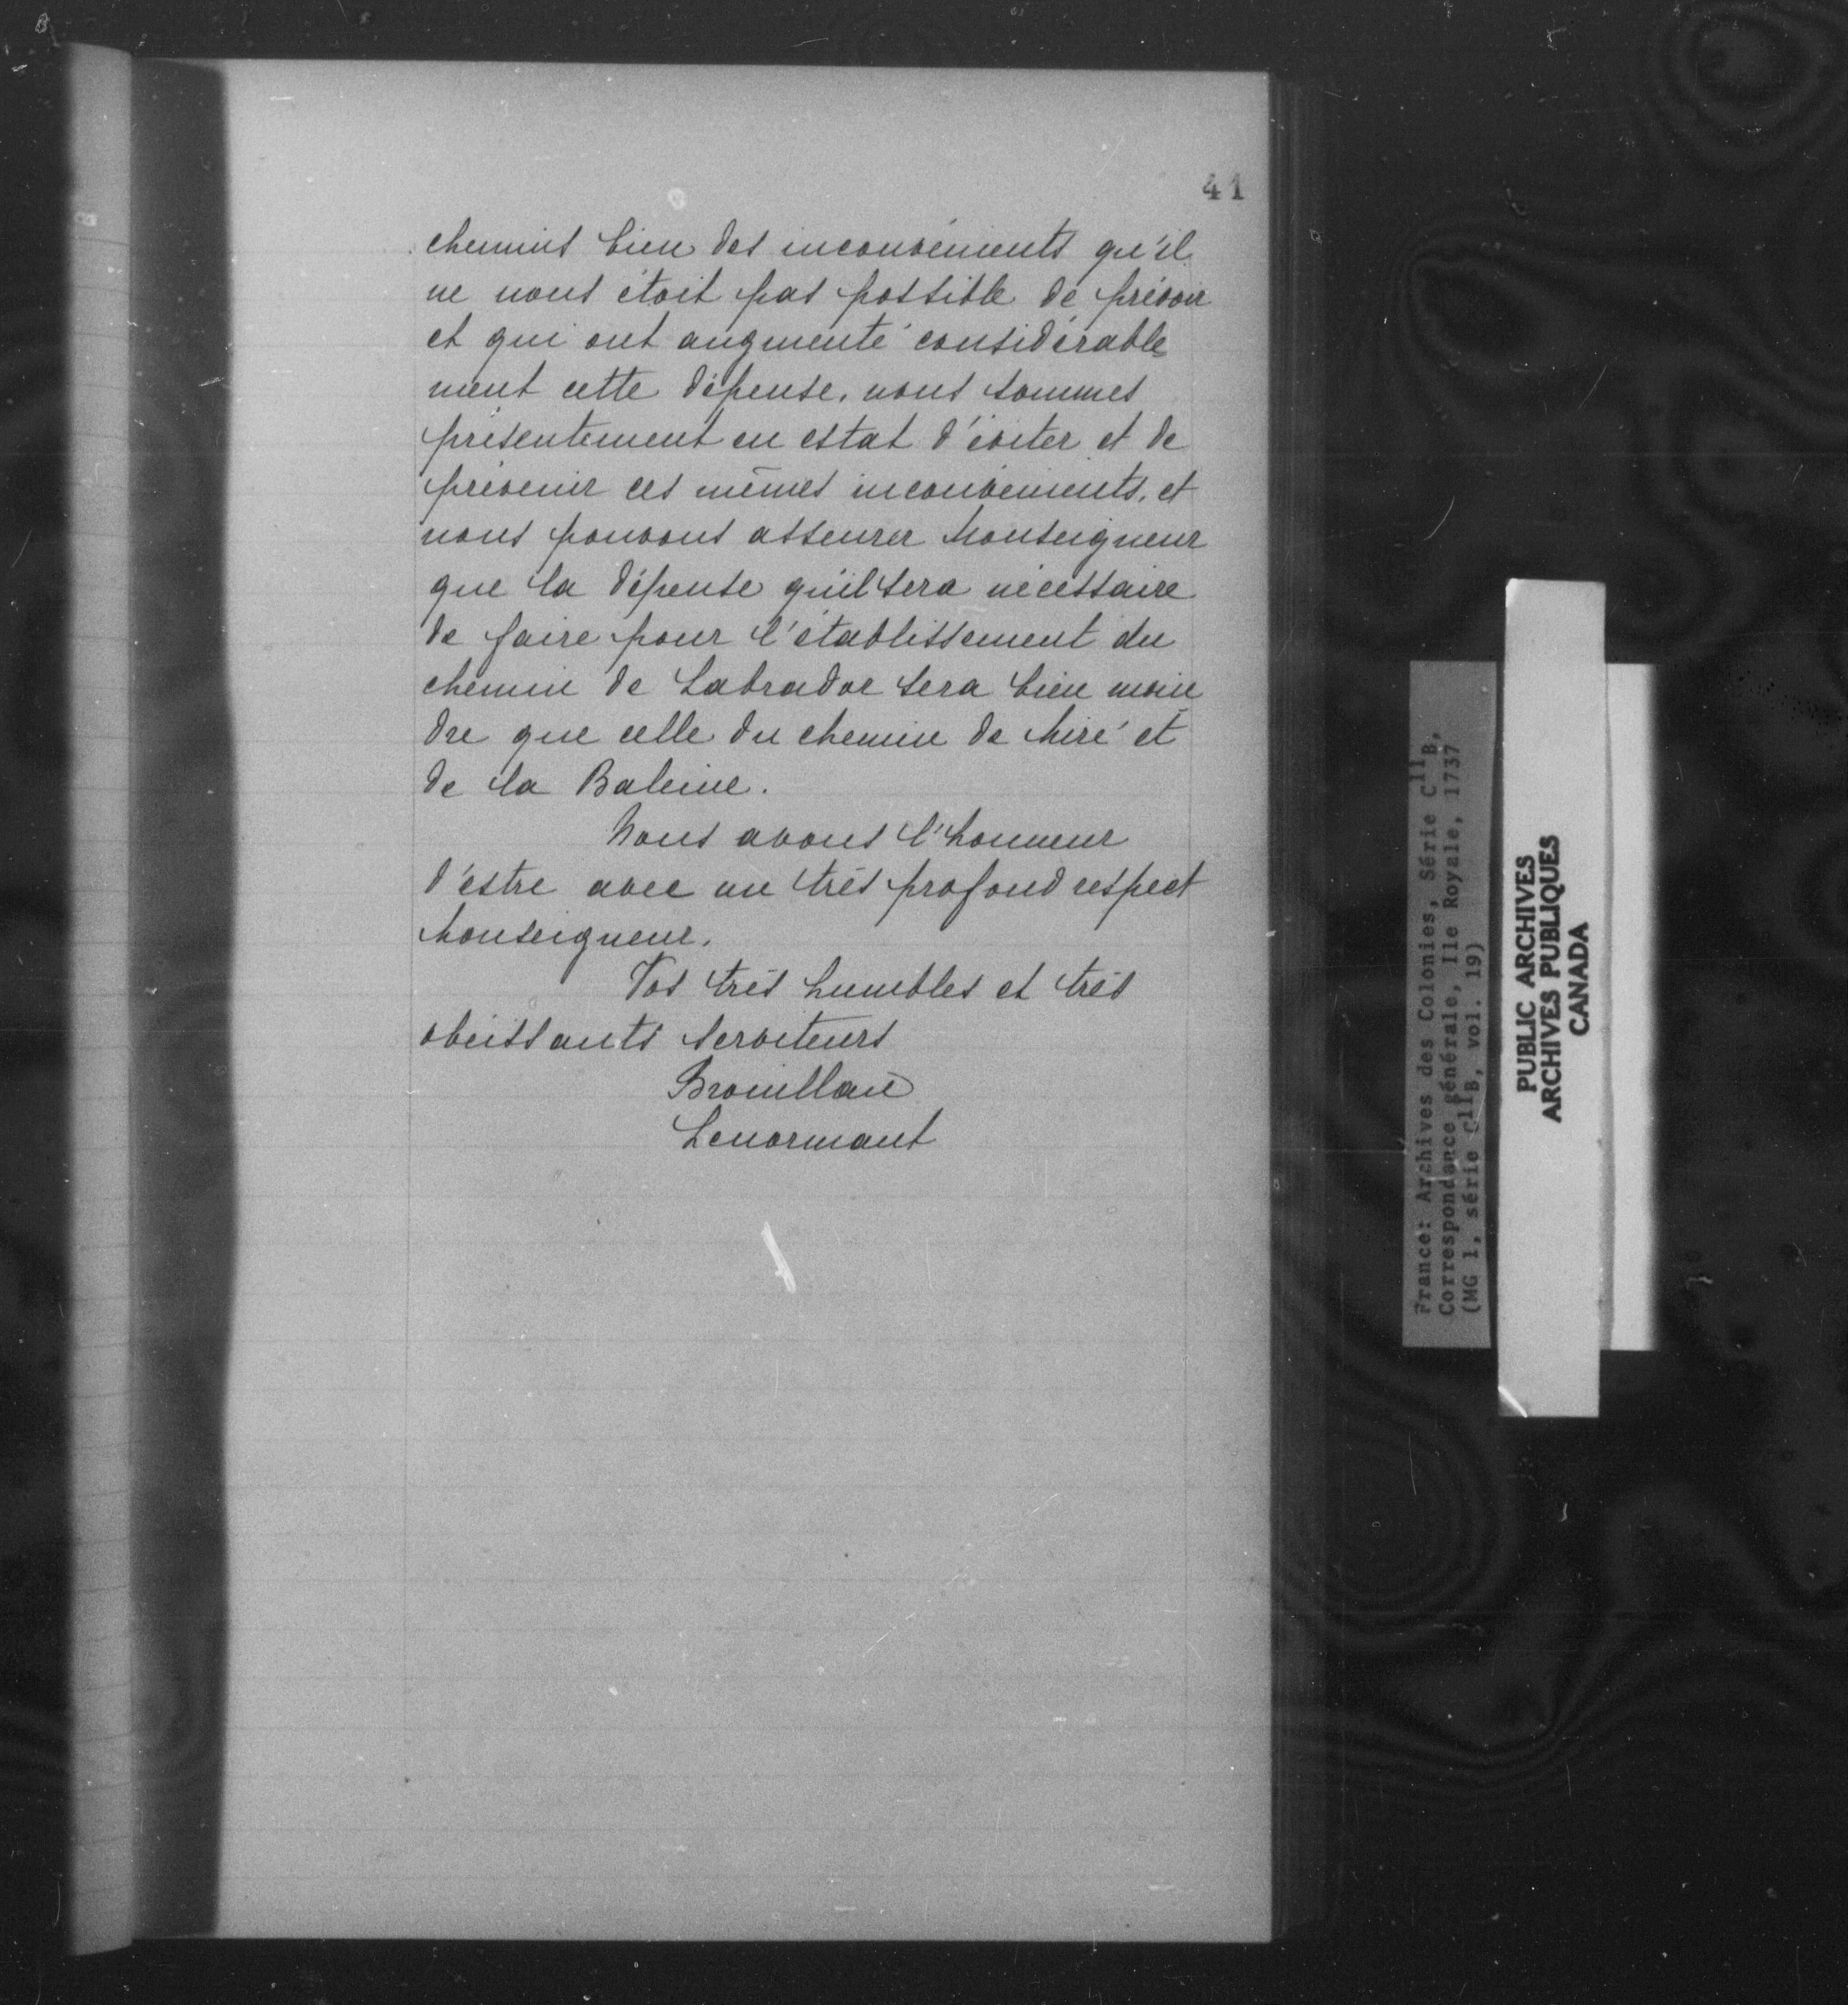 41
chemins bien des inconvénients qu'il
ne nous étoit pas possible de prévoir
et qui ont augmenté considérable
ment cette dépense, nous sommes
présentement en estat d'éviter et de
prévenir ces mêmes inconvénients, et
nous pouvons asseurer Monseigneur
que la dépense qu'il sera nécessaire
de faire pour l'établissement du
chemin de Labrador sera bien moin
dre que celle du chemin de Miré et
de la Baleine.
Nous avons l'honneur
d'estre avec un très profond respect
Monseigneur.
Vos très humbles et très
obeissants serviteurs
Brouillan
Lenormant
France: Archives des Colonies, Série C11B,
Correspondance générale, Ile Royale, 1737
(MG 1, série C11B, vol. 19)
PUBLIC ARCHIVES
ARCHIVES PUBLIQUES
CANADA